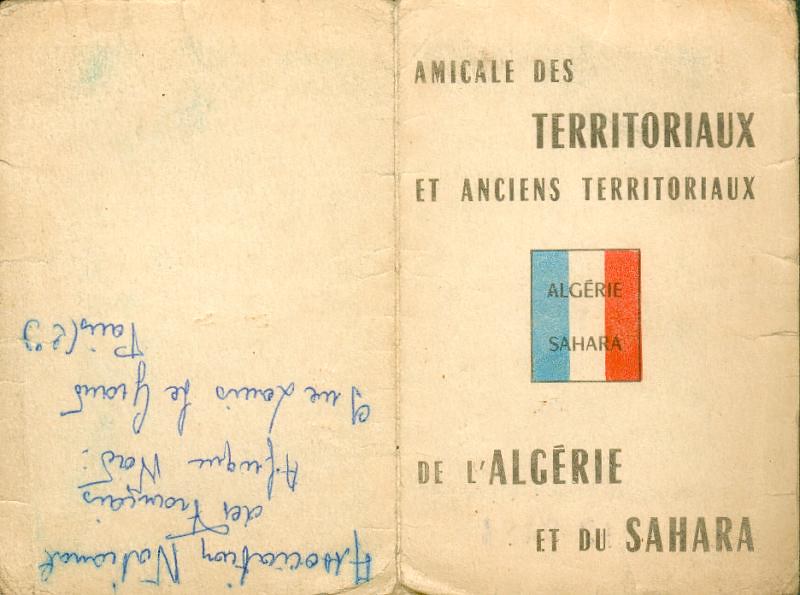 AMICALE DES
TERRITORIAUX
ET ANCIENS TERRITORIAUX
ALGÉRIE
SAHARA
DE L'ALGÉRIE
ET DU SAHARA
Association National
des Français
Afrique Nord :
rue Louis Le Grand
Paris (2e)